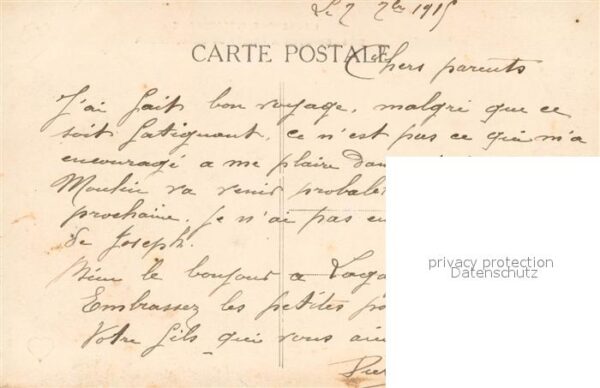 Le 7 7bre 1915
CARTE POSTALE
Chers parents
J'ai fait bon voyage, malgré que ce
soit fatiguant. ce n'est pas ce qui m'a
encouragé a me plaire dan
Moulin va venir probable
prochaine. Je n'ai pas en
de Joseph.
Bien le bonjour a
Embrassez les petites
Votre fils qui vous aim
privacy protection
Datenschutz